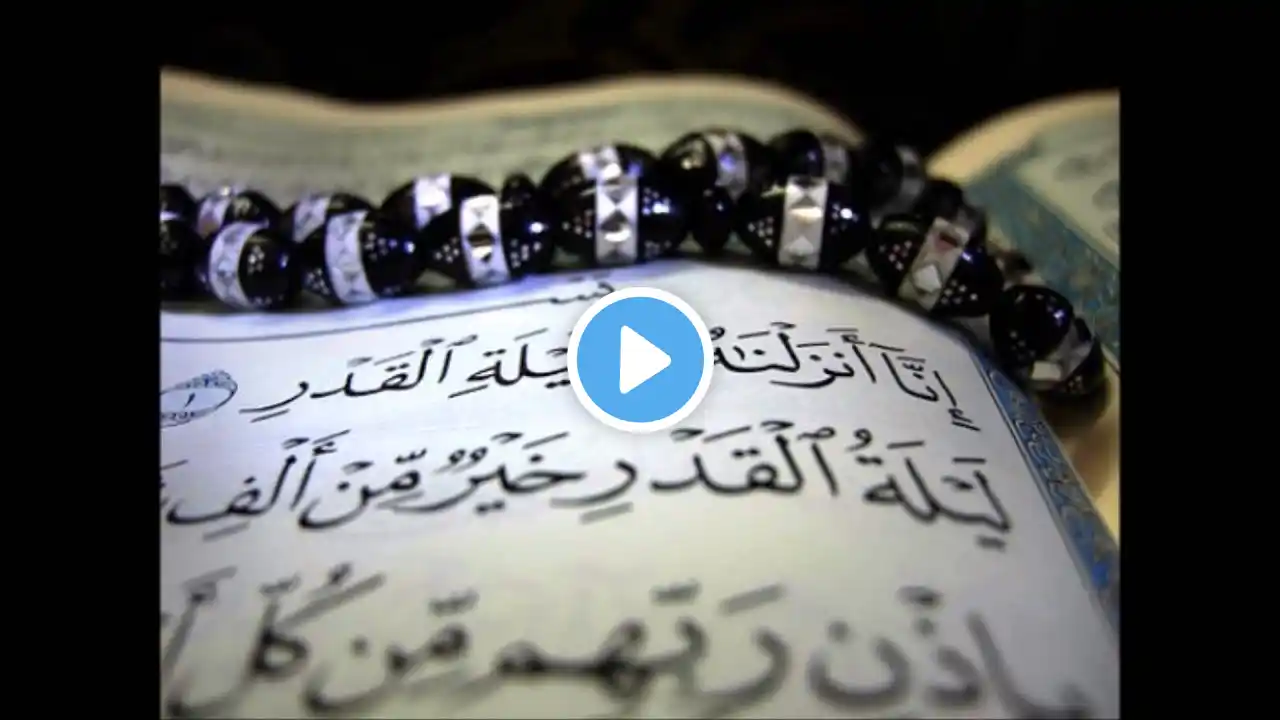 إِنَّآ أَنزَلْنَـٰهُ يْلَةِ ٱلْقَدْرِ ١
لَيْلَةُ ٱلْقَدْرِ خَيْرٌ مِّنْ أَلْفِ
بِإِذْنِ رَبِّهِم مِّن كُلِّ